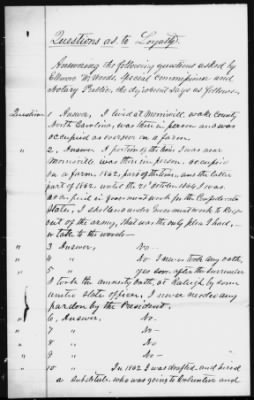 Questions as to Loyalty.
Answering the following questions asked by
W. Woods, Special Commissioner and
Notary Public, the deponent says as follows.
Question 1. Answer, I lived at Morrisville, Wake County
North Carolina, was there in person and was
occupied as overseer on a farm.
" 2. Answer, A portion of the time I was near
Morrisville was there in person, occupied
on a farm, 1862, part of the time, and the latter
part of 1862, until the 21st October 1864 I was
in government work for the Confederate
States, I government work to keep
out of the army, that was the only plan I had,
or take to the woods—
" 3 Answer, No—
" 4 " No I never took any oath,
" 5 " yes soon after the surrender
I took the amnesty oath, at Raleigh by some
united state officer, I never needed any
pardon by the President.
" 6, Answer, No.
" 7 " No—
" 8 " No.
" 9 " No—
" 10 " In 1862 I was drafted, and hired
a substitute, who was going to Volunteer and